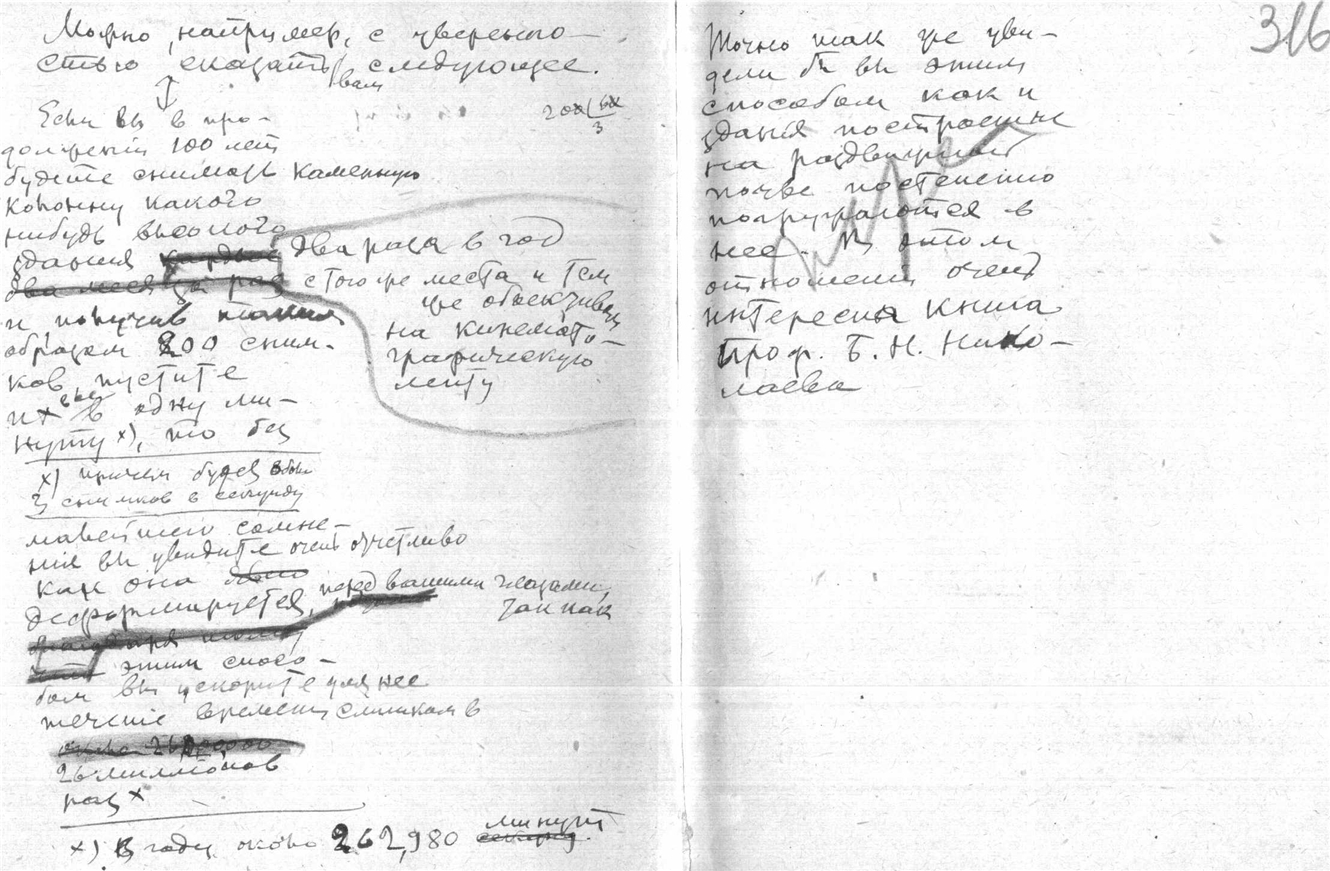 Можно, например, с уверенно-
стью сказать вам следующее.
Если вы в про-
должении 100 лет
будете снимать каменную
колонну какого
нибудь высокого
здания два раза в год
с того же места и тем
же объективом
на кинемато-
графическую
ленту
и получив таким
образом 200 сним-
ков, пустите
их все в одну ми-
нуту x), то без
x) причем будет
снимков в секунду
малейшего сомне-
ния вы увидите очень отчетливо
как она
деформируется, перед вашими глазами,
так как
этим спосо-
бом вы ускорите для нее
течение времени слишком в
26 миллионов
раз x
x) В году около 262,980 минут
316
Точно так же уви-
дели бы вы этим
способом как и
здания построенные
на раздвижной
почве постепенно
погружаются в
нее. В этом
отношении очень
интересна книга
Проф. Б. Н. Нико-
лаева